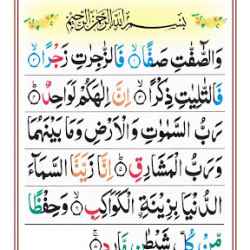 بِسْمِ اللّٰهِ الرَّحْمٰنِ الرَّحِيْمِ
وَالصّٰٓفّٰتِ صَفًّا ۙ فَالزّٰجِرٰتِ زَجْرًا ۙ
فَالتّٰلِيٰتِ ذِكْرًا ۙ اِنَّ اِلٰهَكُمْ لَوَاحِدٌ ؕ
رَبُّ السَّمٰوٰتِ وَالْاَرْضِ وَمَا بَيْنَهُمَا
وَرَبُّ الْمَشَارِقِ ؕ اِنَّا زَيَّنَّا السَّمَآءَ
الدُّنْيَا بِزِيْنَةِ ۨالْكَوَاكِبِ ۙ وَحِفْظًا
مِّنْ كُلِّ شَيْطٰنٍ مَّارِدٍ ۚ